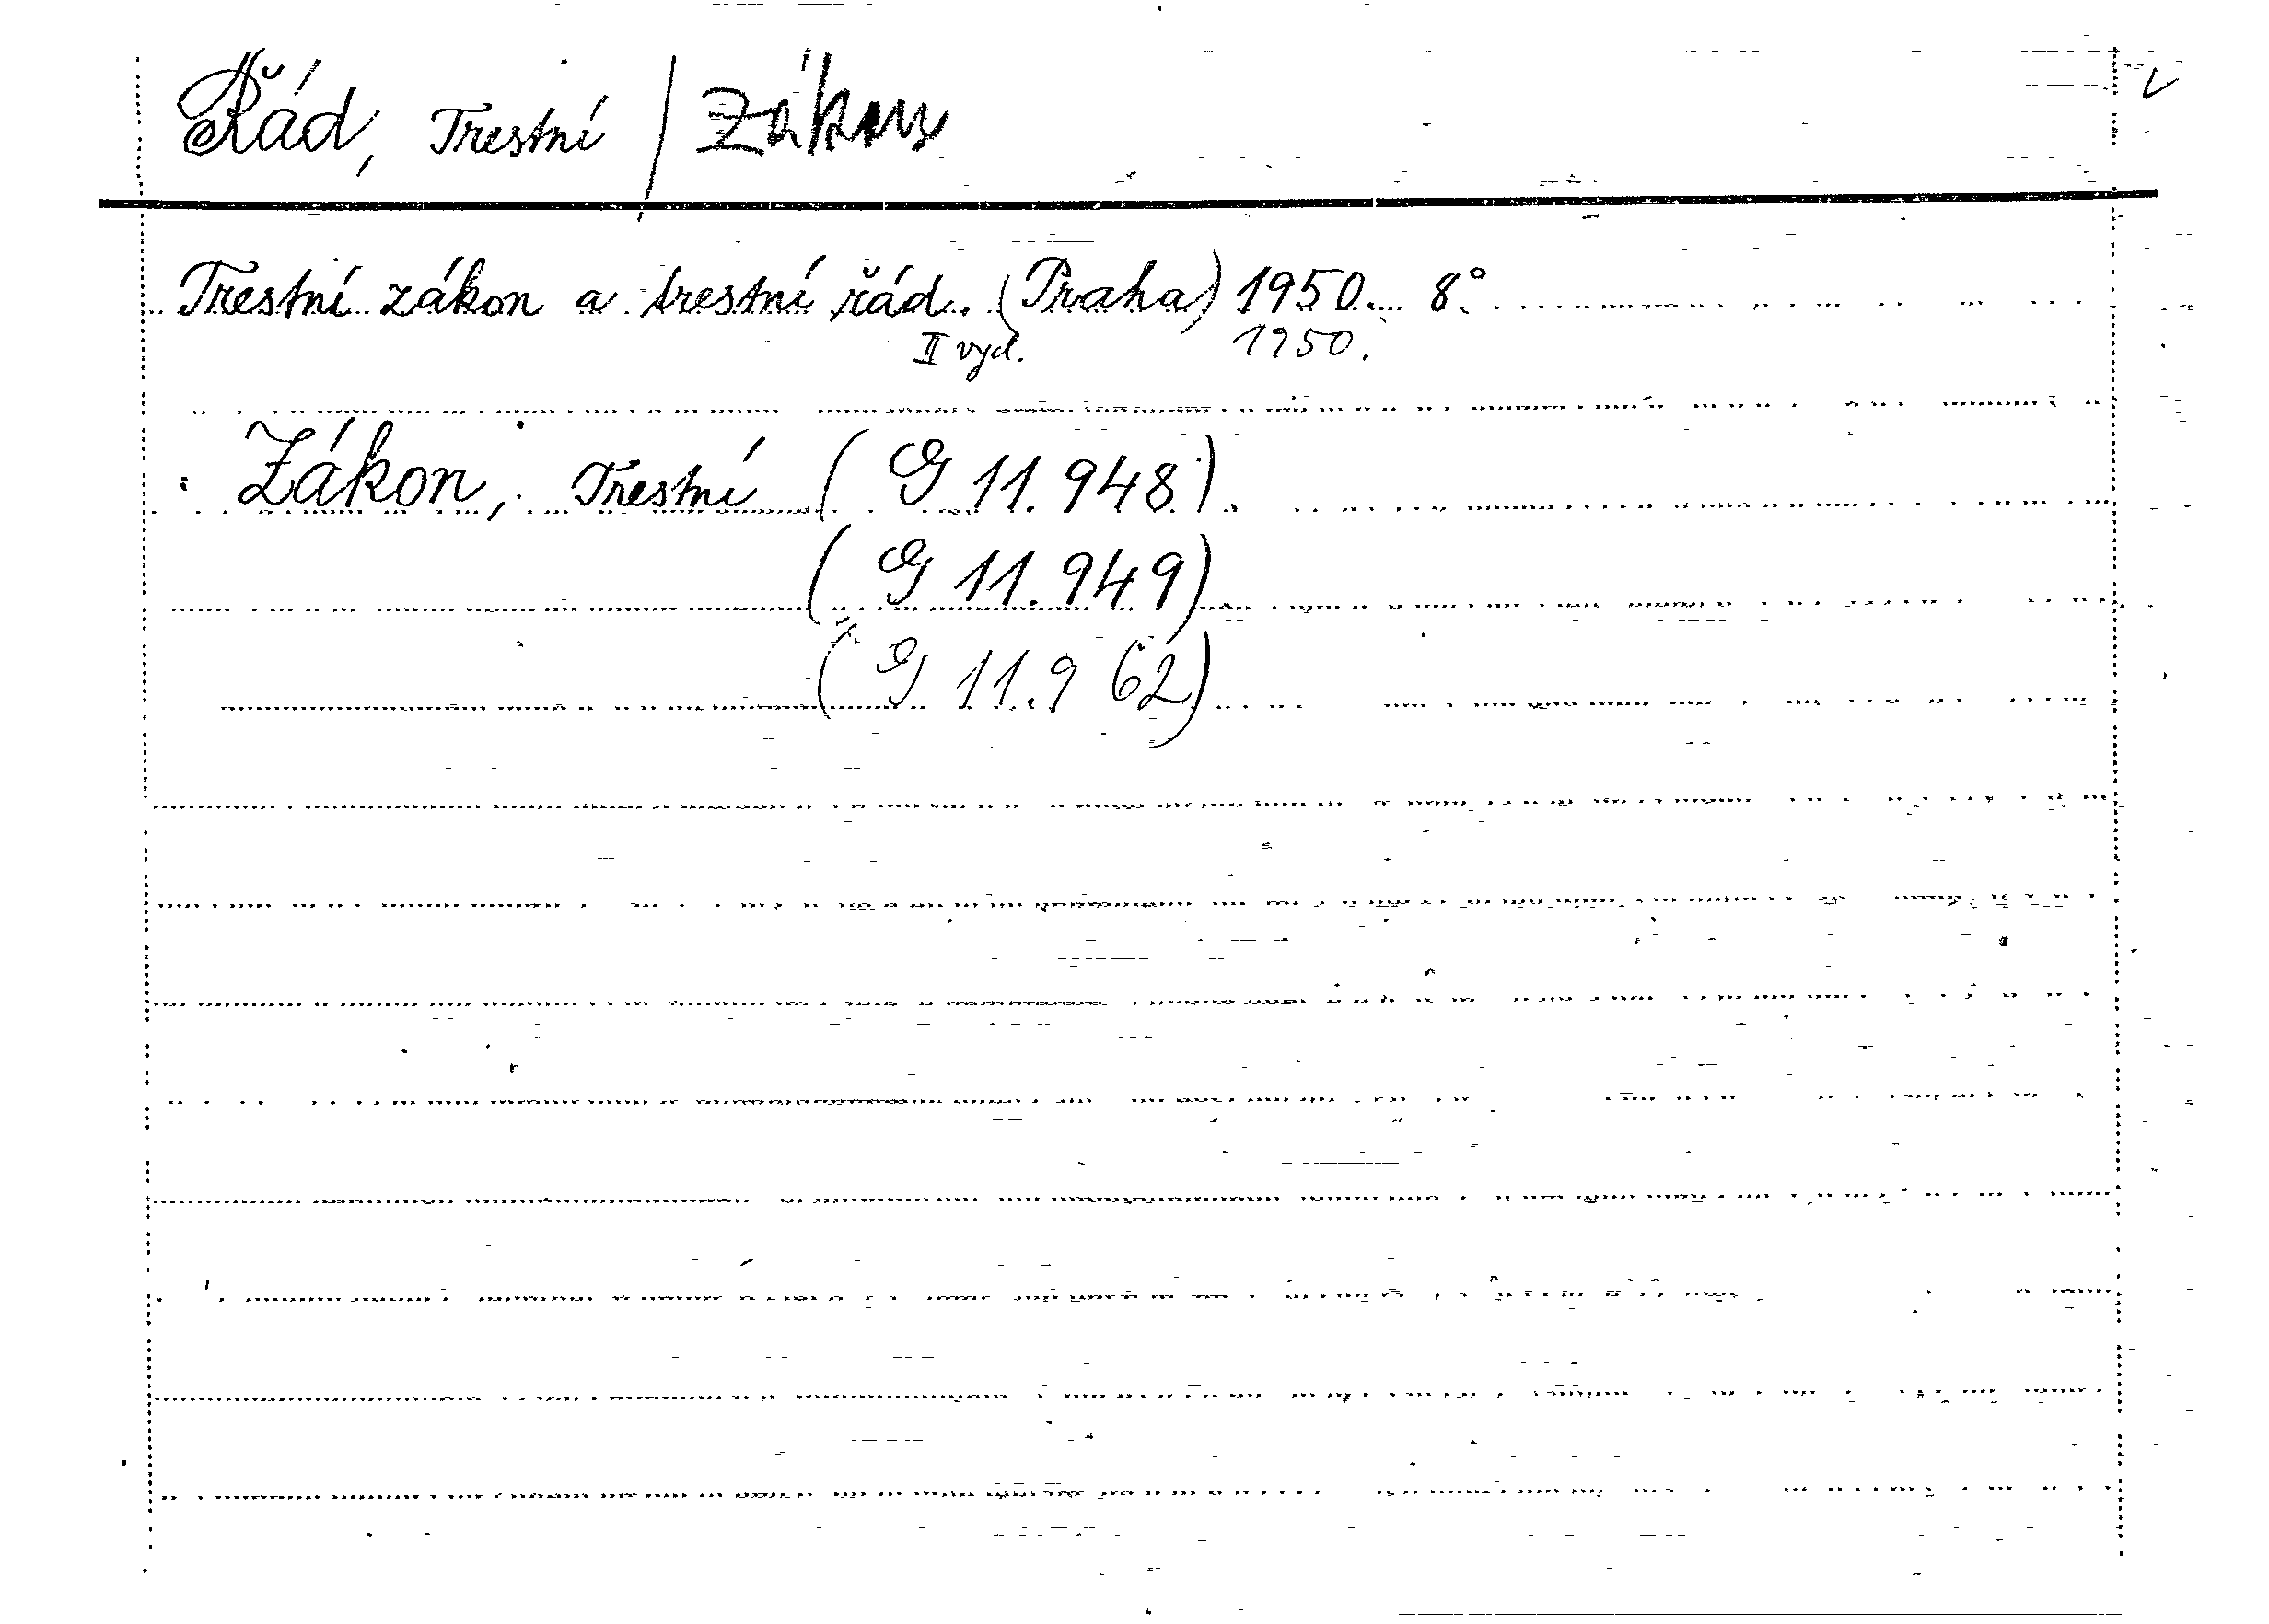 Řád, Trestní / Zákon
Trestní zákon a trestní řád. (Praha) 1950. 8°.
II vyd. 1950.
: Zákon, Trestní (G 11.948).
(G 11.949)
(G 11.962)